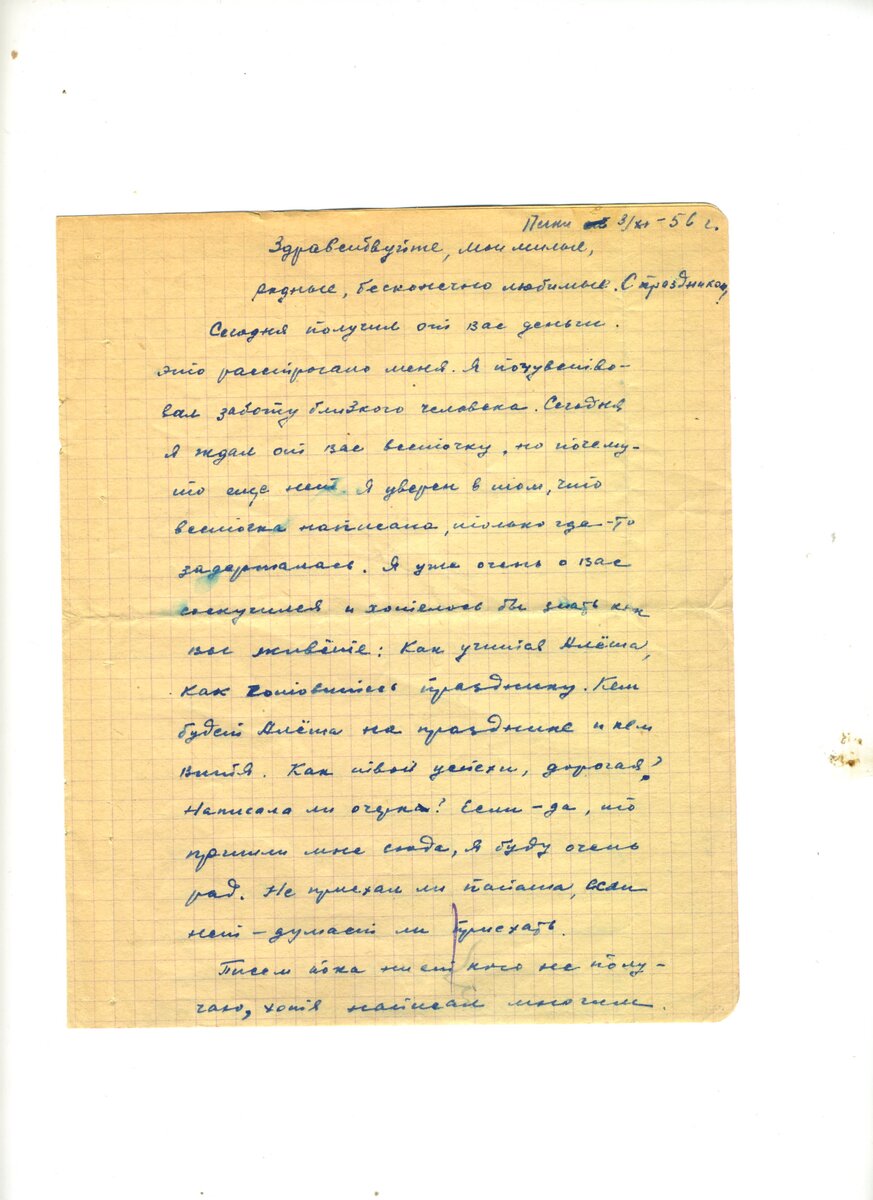 Пики 3/XI-56 г.
Здравствуйте, мои милые,
родные, бесконечно любимые. С праздником,
Сегодня получил от вас деньги.
Это расстрогало меня. Я почувство-
вал заботу близкого человека. Сегодня
я ждал от вас весточку, но почему-
то еще нет. Я уверен в том, что
весточка написана, только где-то
задержалась. Я уже очень о вас
соскучился и хотелось бы знать как
вы живёте: Как учится Алёша,
как готовитесь празднику. Кем
будет Алёша на празднике и кем
Витя. Как твои успехи, дорогая?
Написала ли очерк? Если – да, то
пришли мне сюда, я буду очень
рад. Не приехал ли папаша, если
нет – думает ли приехать.
Писем пока ни от кого не полу-
чаю, хотя написал многим.